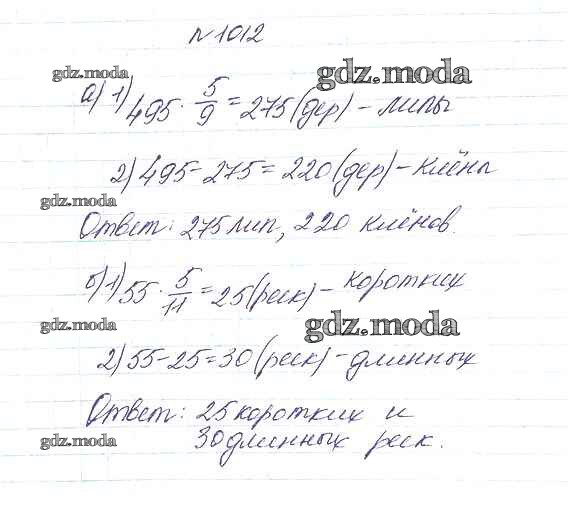 №1012
gdz.moda
gdz.moda
а) 1) 495 · 5/9 = 275 (дер) – липы
2) 495 – 275 = 220 (дер) – клёны
gdz.moda
Ответ: 275 лип, 220 клёнов.
б) 1) 55 · 5/11 = 25 (реек) – коротких
gdz.moda
gdz.moda
2) 55 – 25 = 30 (реек) – длинных
Ответ: 25 коротких и
gdz.moda
30 длинных реек.